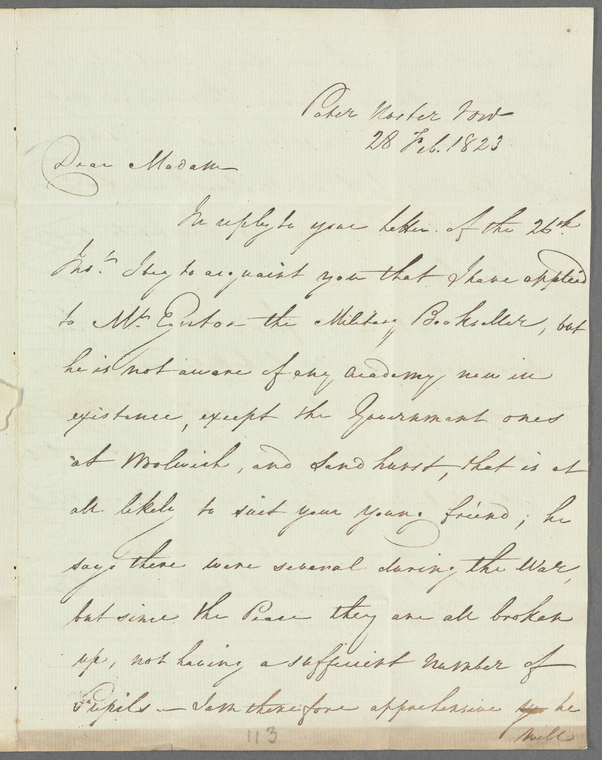 Pater Noster Row
28 Feb. 1823
Dear Madam
In reply to your letter of the 26th
Inst. I beg to acquaint you that I have applied
to Mr. Egerton the Military Bookseller, but
he is not aware of any Academy now in
existence, except the Government ones
at Woolwich, and Sandhurst, that is at
all likely to suit your young friend; he
says there were several during the War,
but since the Peace they are all broken
up, not having a sufficient number of
Pupils — I am therefore apprehensive he
will
113